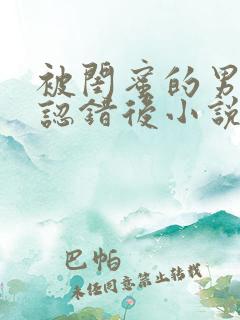 被閨蜜的男
認錯後小說
巴帕
未經同意禁止轉載